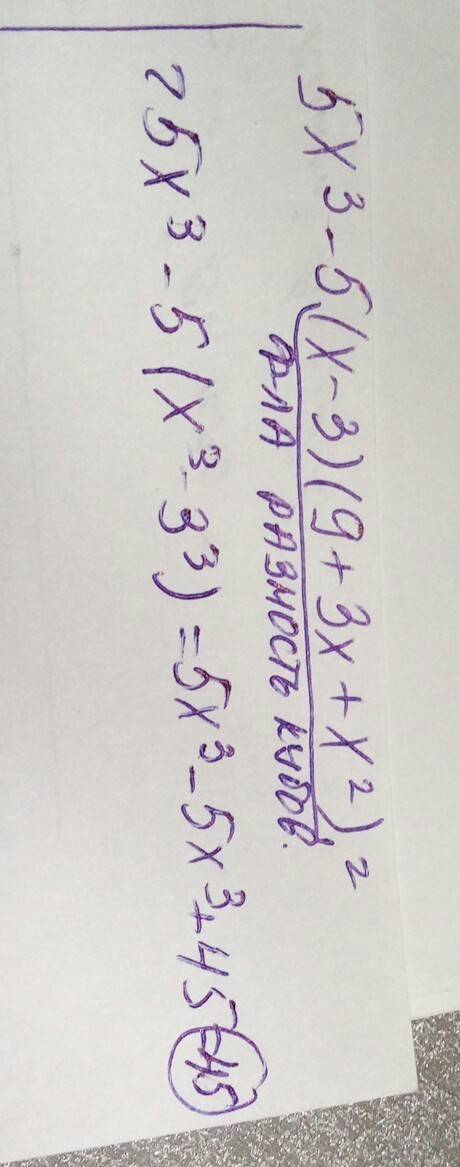 5x³-5(x-3)(9+3x+x²)=
ф-ла разность кубов.
=5x³-5(x³-3³)=5x³-5x³+45=45